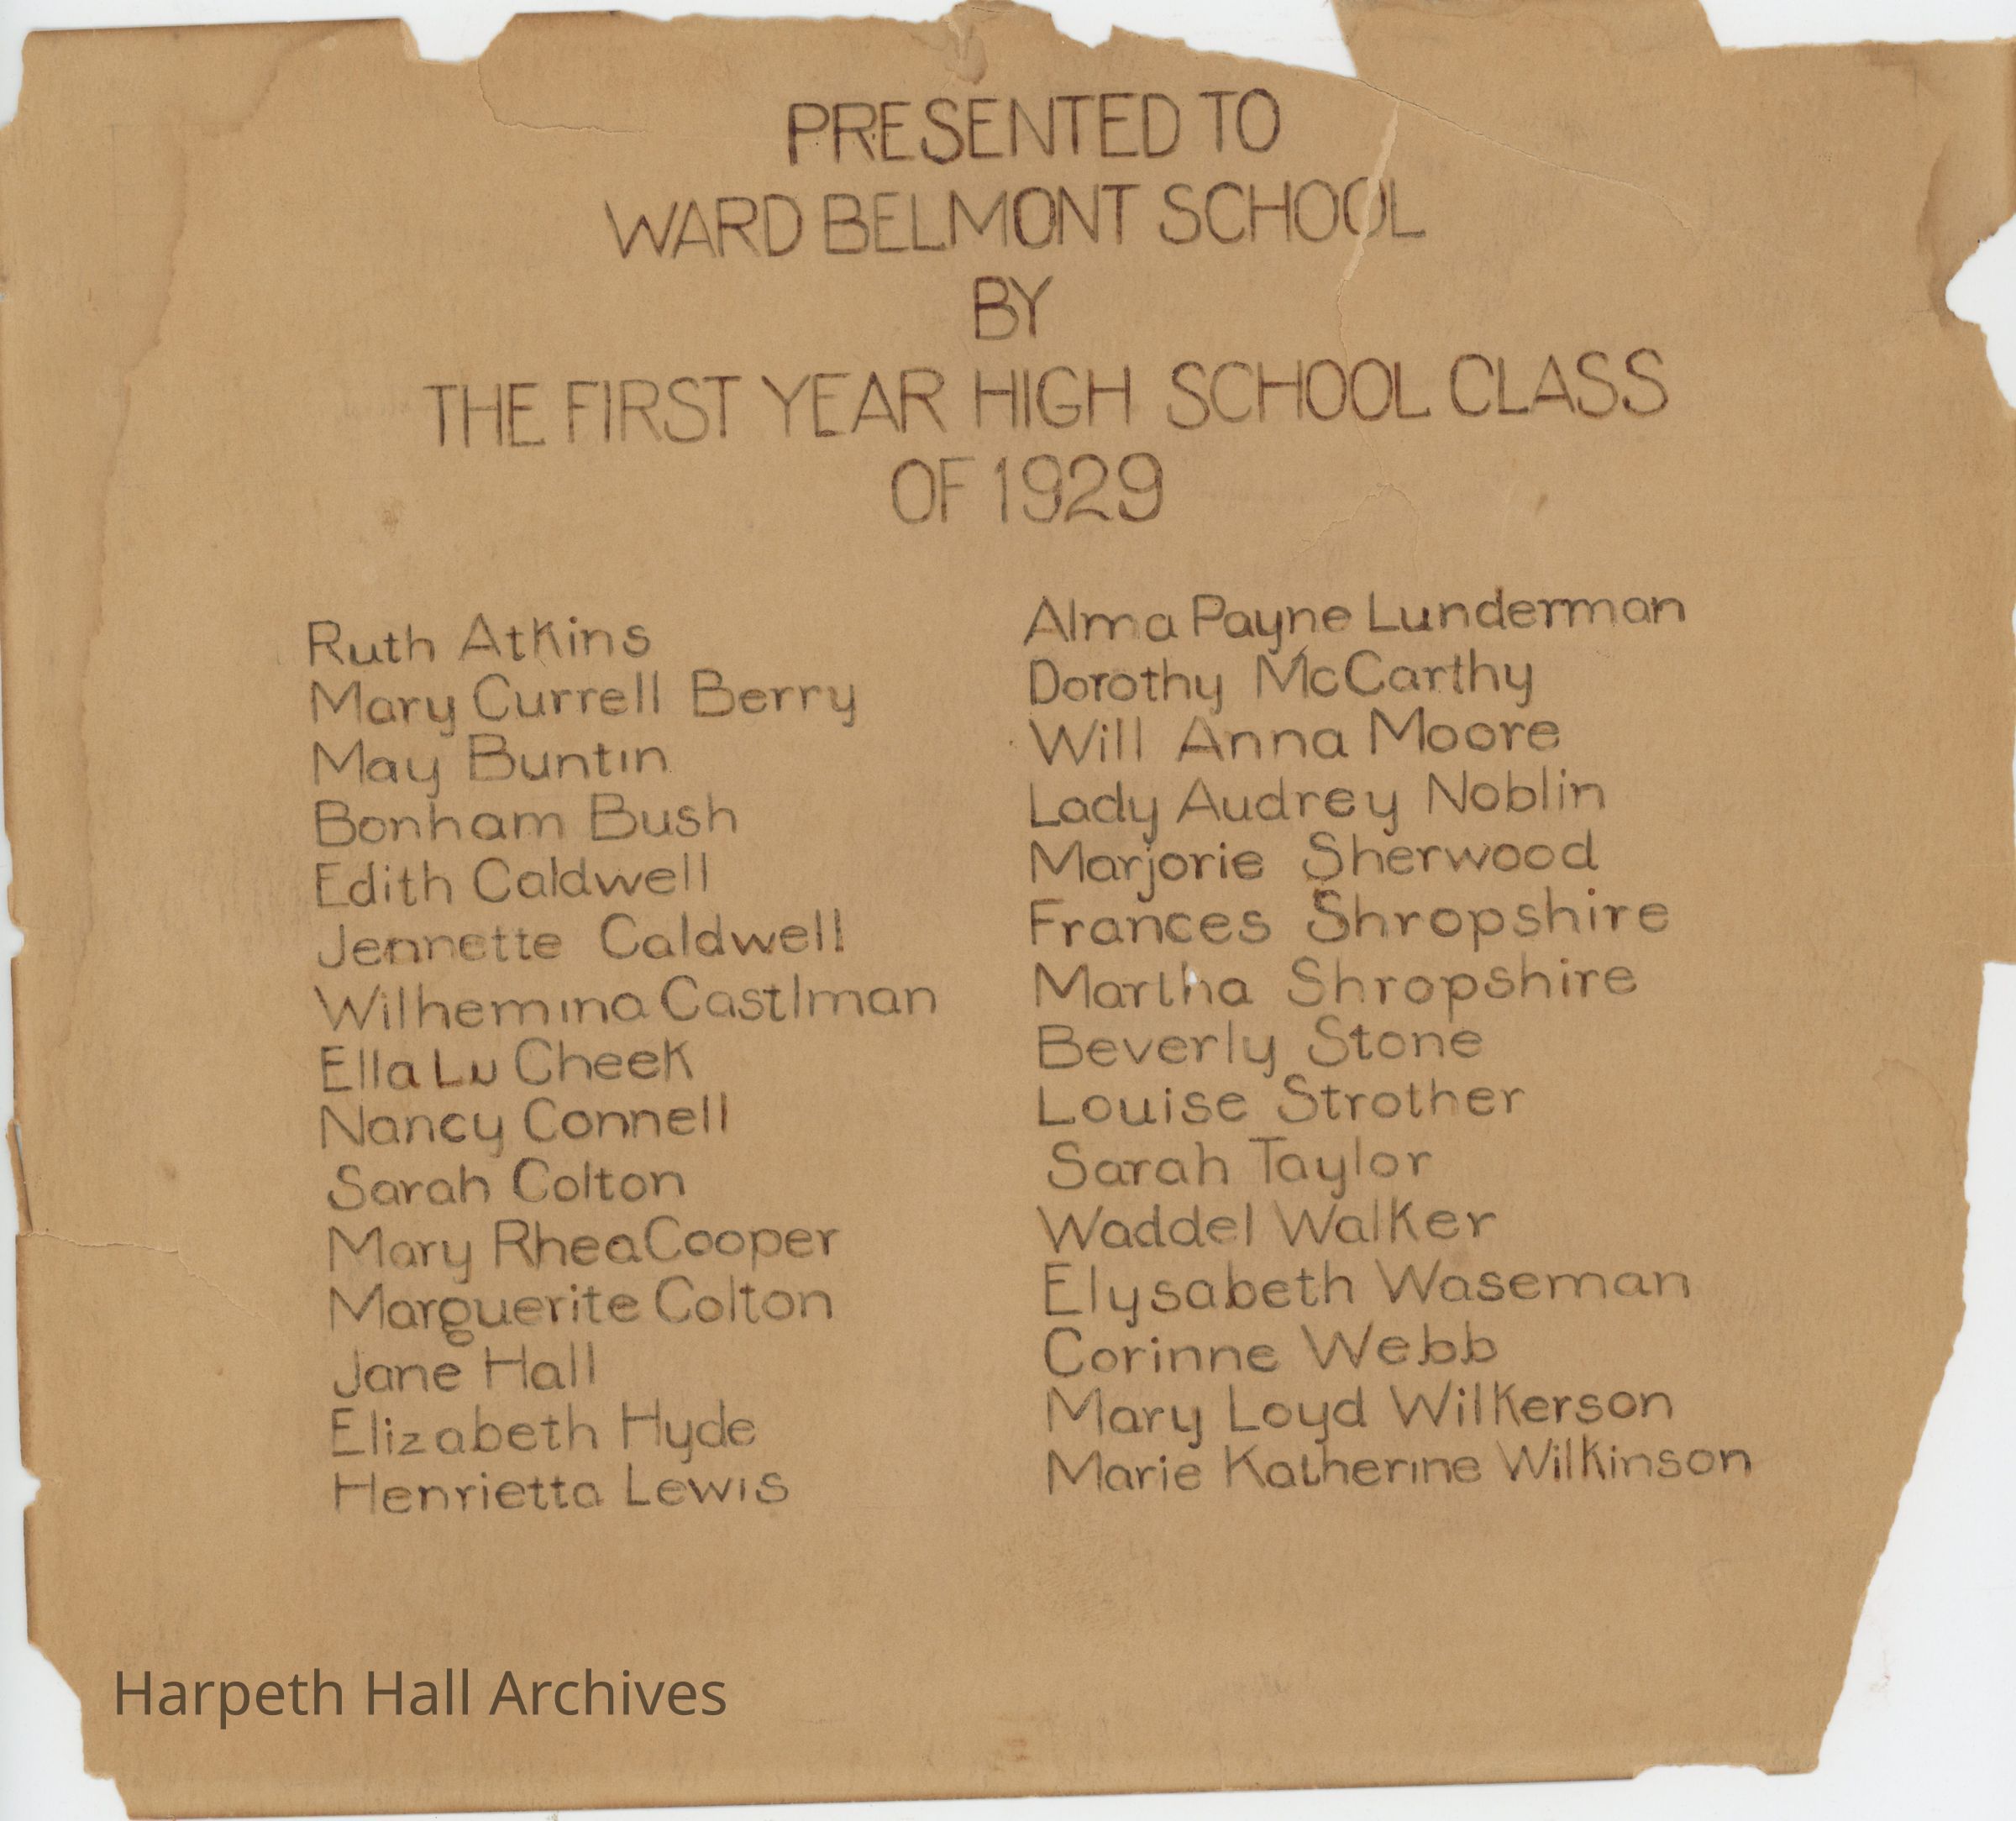 PRESENTED TO
WARD BELMONT SCHOOL
BY
THE FIRST YEAR HIGH SCHOOL CLASS
OF 1929
Ruth Atkins
Mary Currell Berry
May Buntin
Bonham Bush
Edith Caldwell
Jennette Caldwell
Wilhemina Castlman
Ella Lu Cheek
Nancy Connell
Sarah Colton
Mary Rhea Cooper
Marguerite Colton
Jane Hall
Elizabeth Hyde
Henrietta Lewis
Alma Payne Lunderman
Dorothy McCarthy
Will Anna Moore
Lady Audrey Noblin
Marjorie Sherwood
Frances Shropshire
Martha Shropshire
Beverly Stone
Louise Strother
Sarah Taylor
Waddel Walker
Elysabeth Waseman
Corinne Webb
Mary Loyd Wilkerson
Marie Katherine Wilkinson
Harpeth Hall Archives